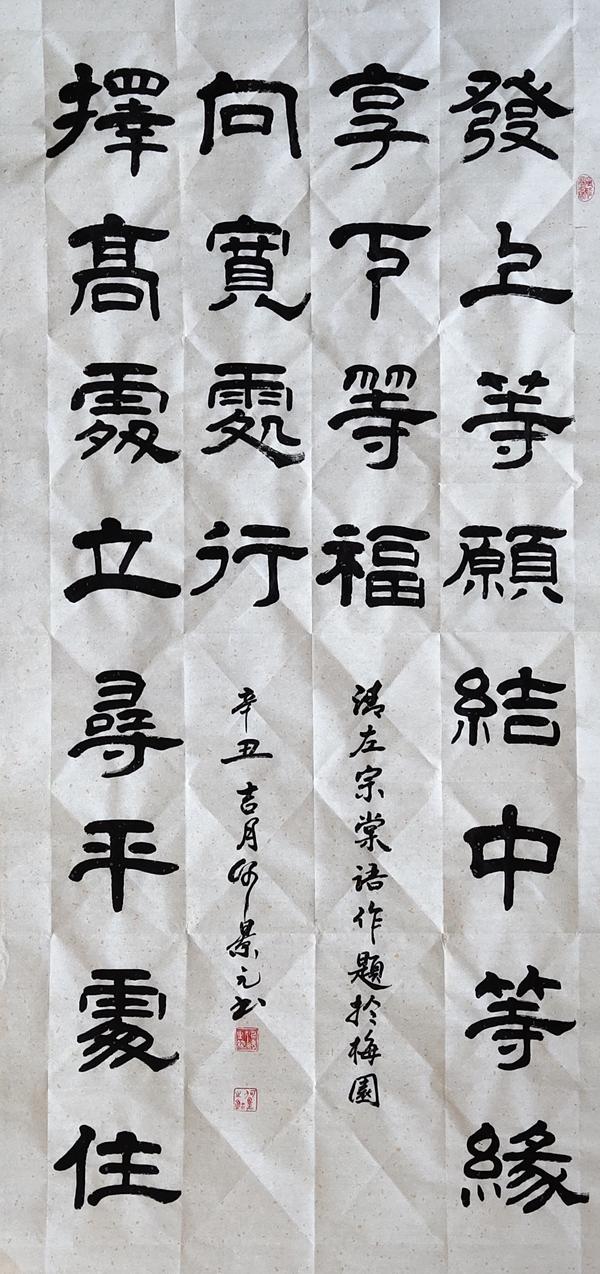 發上等願結中等緣
享下等福
清左宗棠語作題於梅園
擇高處立尋平處住
向寬處行
辛丑吉月何景元書